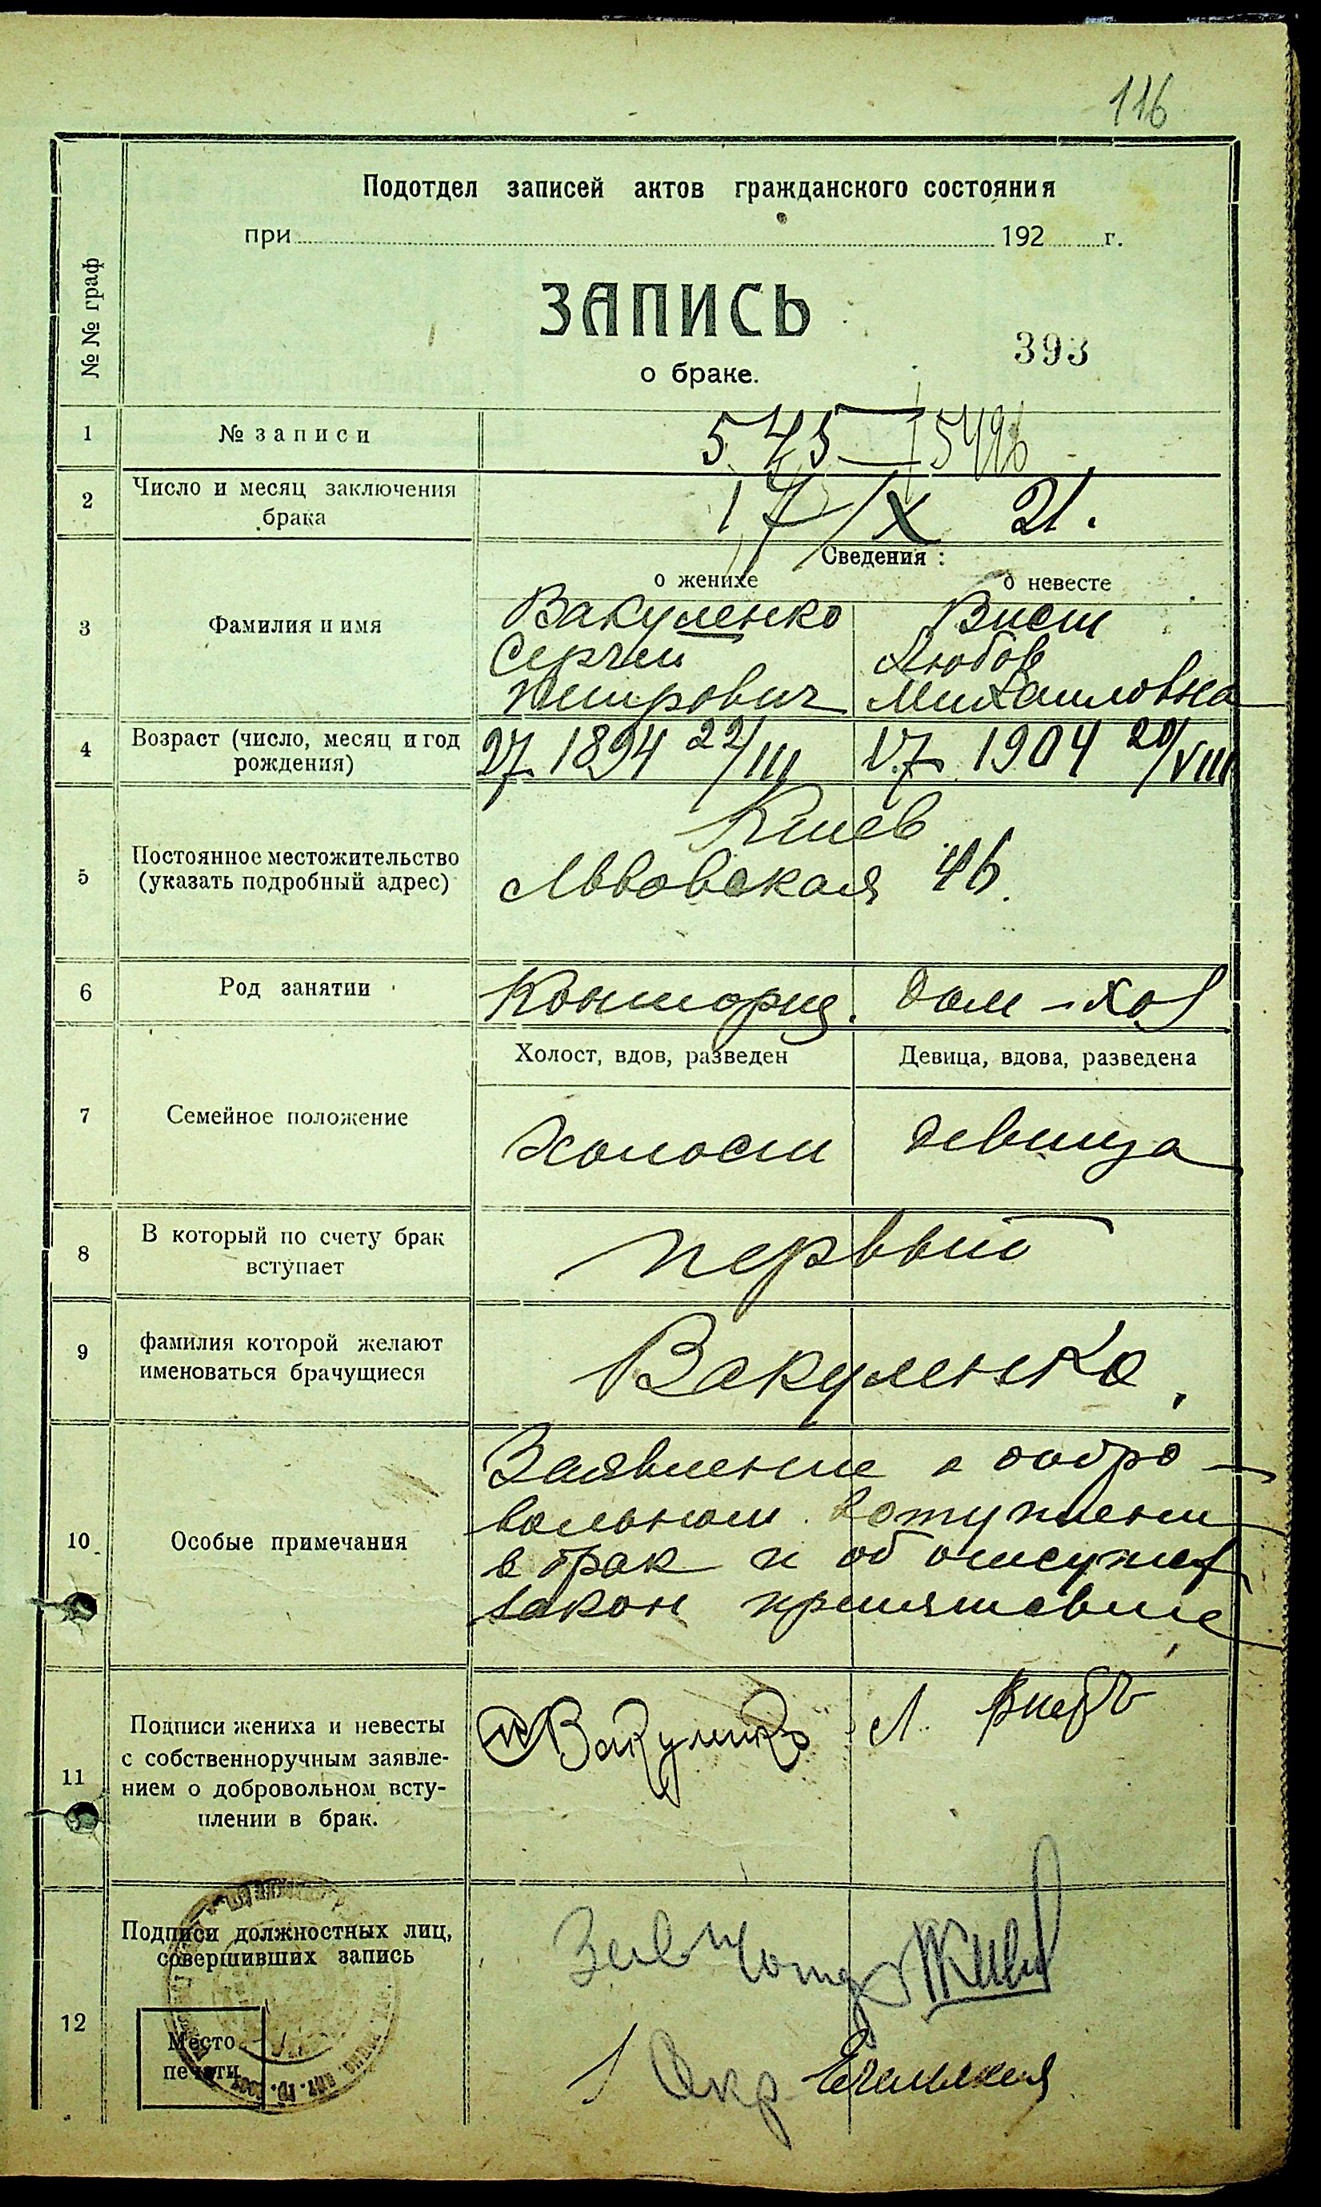 116
Подотдел записей актов гражданского состояния
при 192 г.
№№ граф
ЗАПИСЬ
393
о браке.
1 № записи 545
2 Число и месяц заключения брака 17/X 21.
Сведения:
о женихе о невесте
3 Фамилия и имя
Вакуленко Вист
Сергей Любов
Михаиловна
4 Возраст (число, месяц и год рождения) 27 1894 22/III 17 1904 20/VIII
Киев
5 Постоянное местожительство (указать подробный адрес)
Львовская 46.
6 Род занятии Конторщ. дом-хоз
Холост, вдов, разведен Девица, вдова, разведена
7 Семейное положение холост девица
8 В который по счету брак вступает первый
9 фамилия которой желают именоваться брачущиеся Вакуленко
10 Особые примечания
Заявление о добро-
вольном вступлени
в брак и об отсутст
закон препятствие
11 Подписи жениха и невесты с собственноручным заявле-
нием о добровольном всту-
плении в брак.
Вакуленко Л.
12 Подписи должностных лиц, совершивших запись
Зав
Место печати
Секр